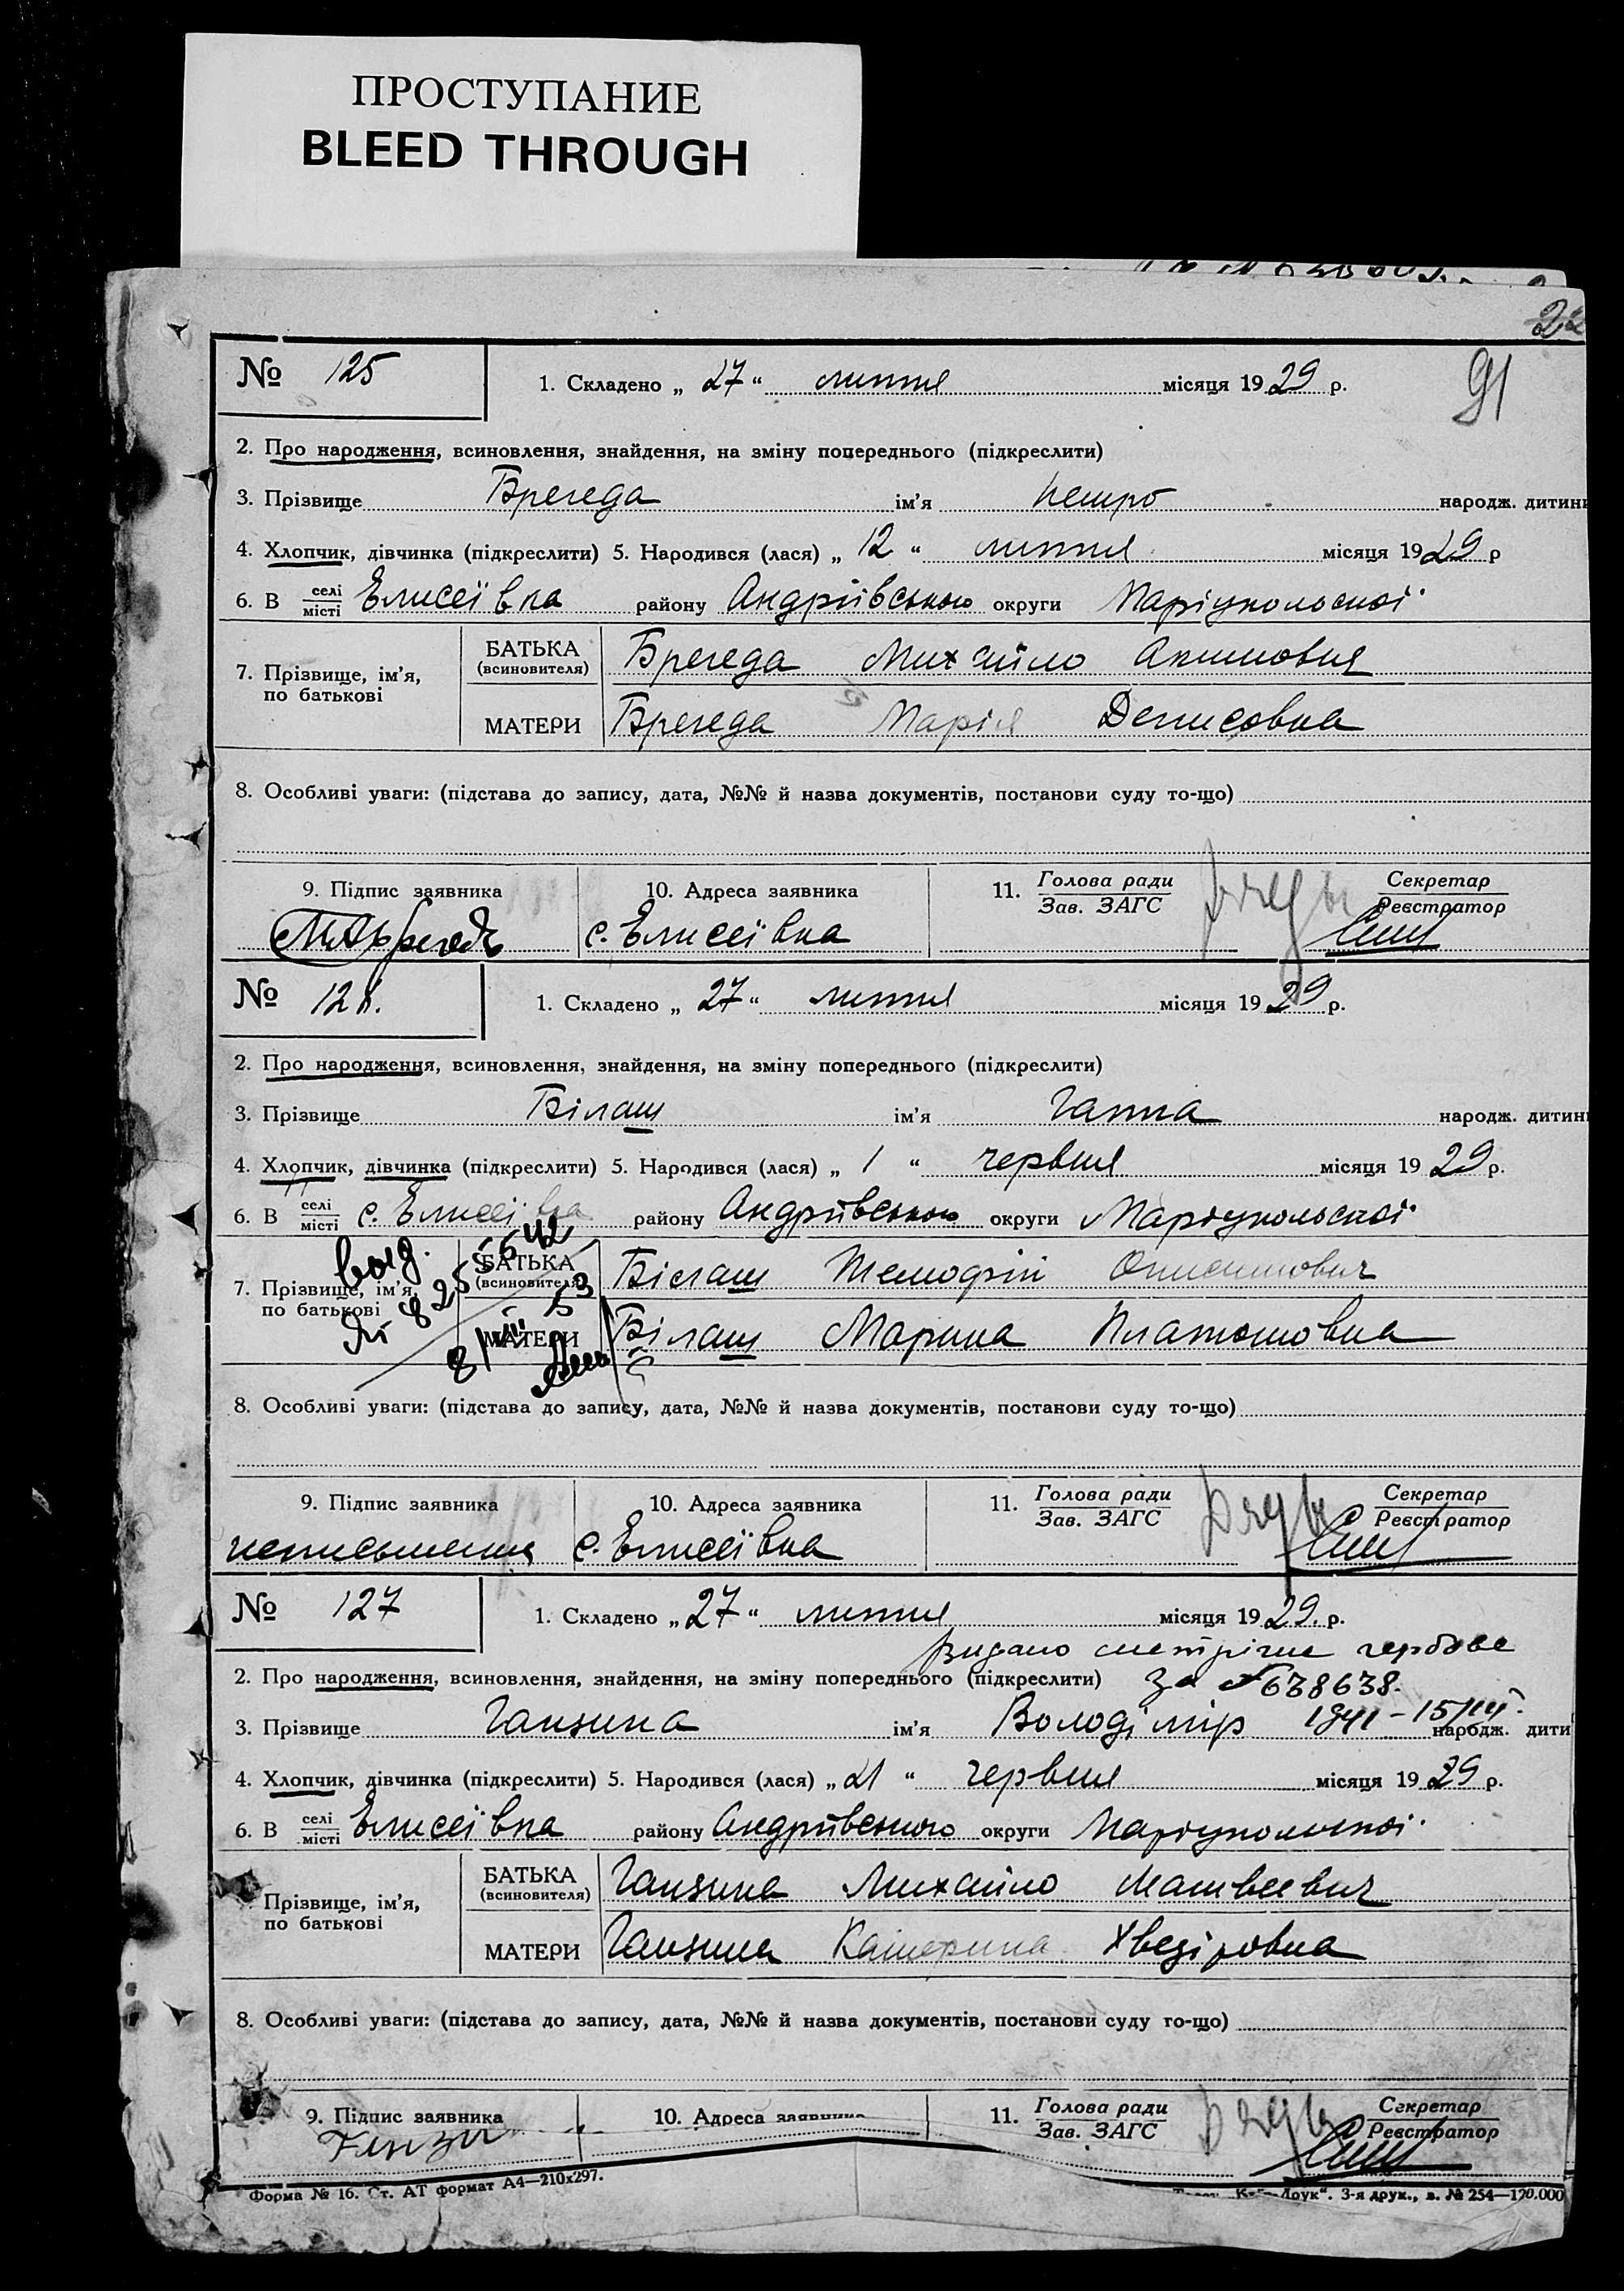 ПРОСТУПАНИЕ
BLEED THROUGH
22
91
№ 125
1. Складено „ 27 “ липня місяця 1929 р.
2. Про народження, всиновлення, знайдення, на зміну попереднього (підкреслити)
3. Прізвище Брегеда ім’я Петро народж. дитини
4. Хлопчик, дівчинка (підкреслити) 5. Народився (лася) „ 12 “ липня місяця 1929 р
6. В селі місті Елисеївка району Андріївського округи Маріупольскої
7. Прізвище, ім’я, по батькові
БАТЬКА (всиновителя) Брегеда Михайло Акимович
МАТЕРИ Брегеда Марія Денисовна
8. Особливі уваги: (підстава до запису, дата, №№ й назва документів, постанови суду то-що)
9. Підпис заявника 10. Адреса заявника 11. Голова ради Зав. ЗАГС Секретар Реєстратор
с. Елисеївка
№ 126.
1. Складено „ 27 “ липня місяця 1929 р.
2. Про народження, всиновлення, знайдення, на зміну попереднього (підкреслити)
3. Прізвище Білаш ім’я Ганна народж. дитини
4. Хлопчик, дівчинка (підкреслити) 5. Народився (лася) „ 1 “ червня місяця 1929 р.
6. В селі місті с. Елисеївка району Андріївського округи Маріупольскої
7. Прізвище, ім’я, по батькові
БАТЬКА (всиновителя) Білаш Тимофій Онисимович
МАТЕРИ Білаш Марина Платоновна
8. Особливі уваги: (підстава до запису, дата, №№ й назва документів, постанови суду то-що)
9. Підпис заявника 10. Адреса заявника 11. Голова ради Зав. ЗАГС Секретар Реєстратор
с. Елисеївка
№ 127
1. Складено „ 27 “ липня місяця 1929. р.
видано метрічне гербове
2. Про народження, всиновлення, знайдення, на зміну попереднього (підкреслити) за № 638638.
1941 – 15/III
3. Прізвище Ганзина ім’я Володімір народж. дити
4. Хлопчик, дівчинка (підкреслити) 5. Народився (лася) „ 21 “ червня місяця 1929 р.
6. В селі місті Елисеївка району Андріївського округи Маріупольскої
Прізвище, ім’я, по батькові
БАТЬКА (всиновителя) Ганзина Михайло Матвеевич
МАТЕРИ Ганзина Катерина Хведіровна
8. Особливі уваги: (підстава до запису, дата, №№ й назва документів, постанови суду то-що)
9. Підпис заявника 10. Адреса заявника 11. Голова ради Зав. ЗАГС Секретар Реєстратор
Форма № 16. Ст. АТ формат А4—210х297.
Друк“. 3-я друк., з. № 254—120.000